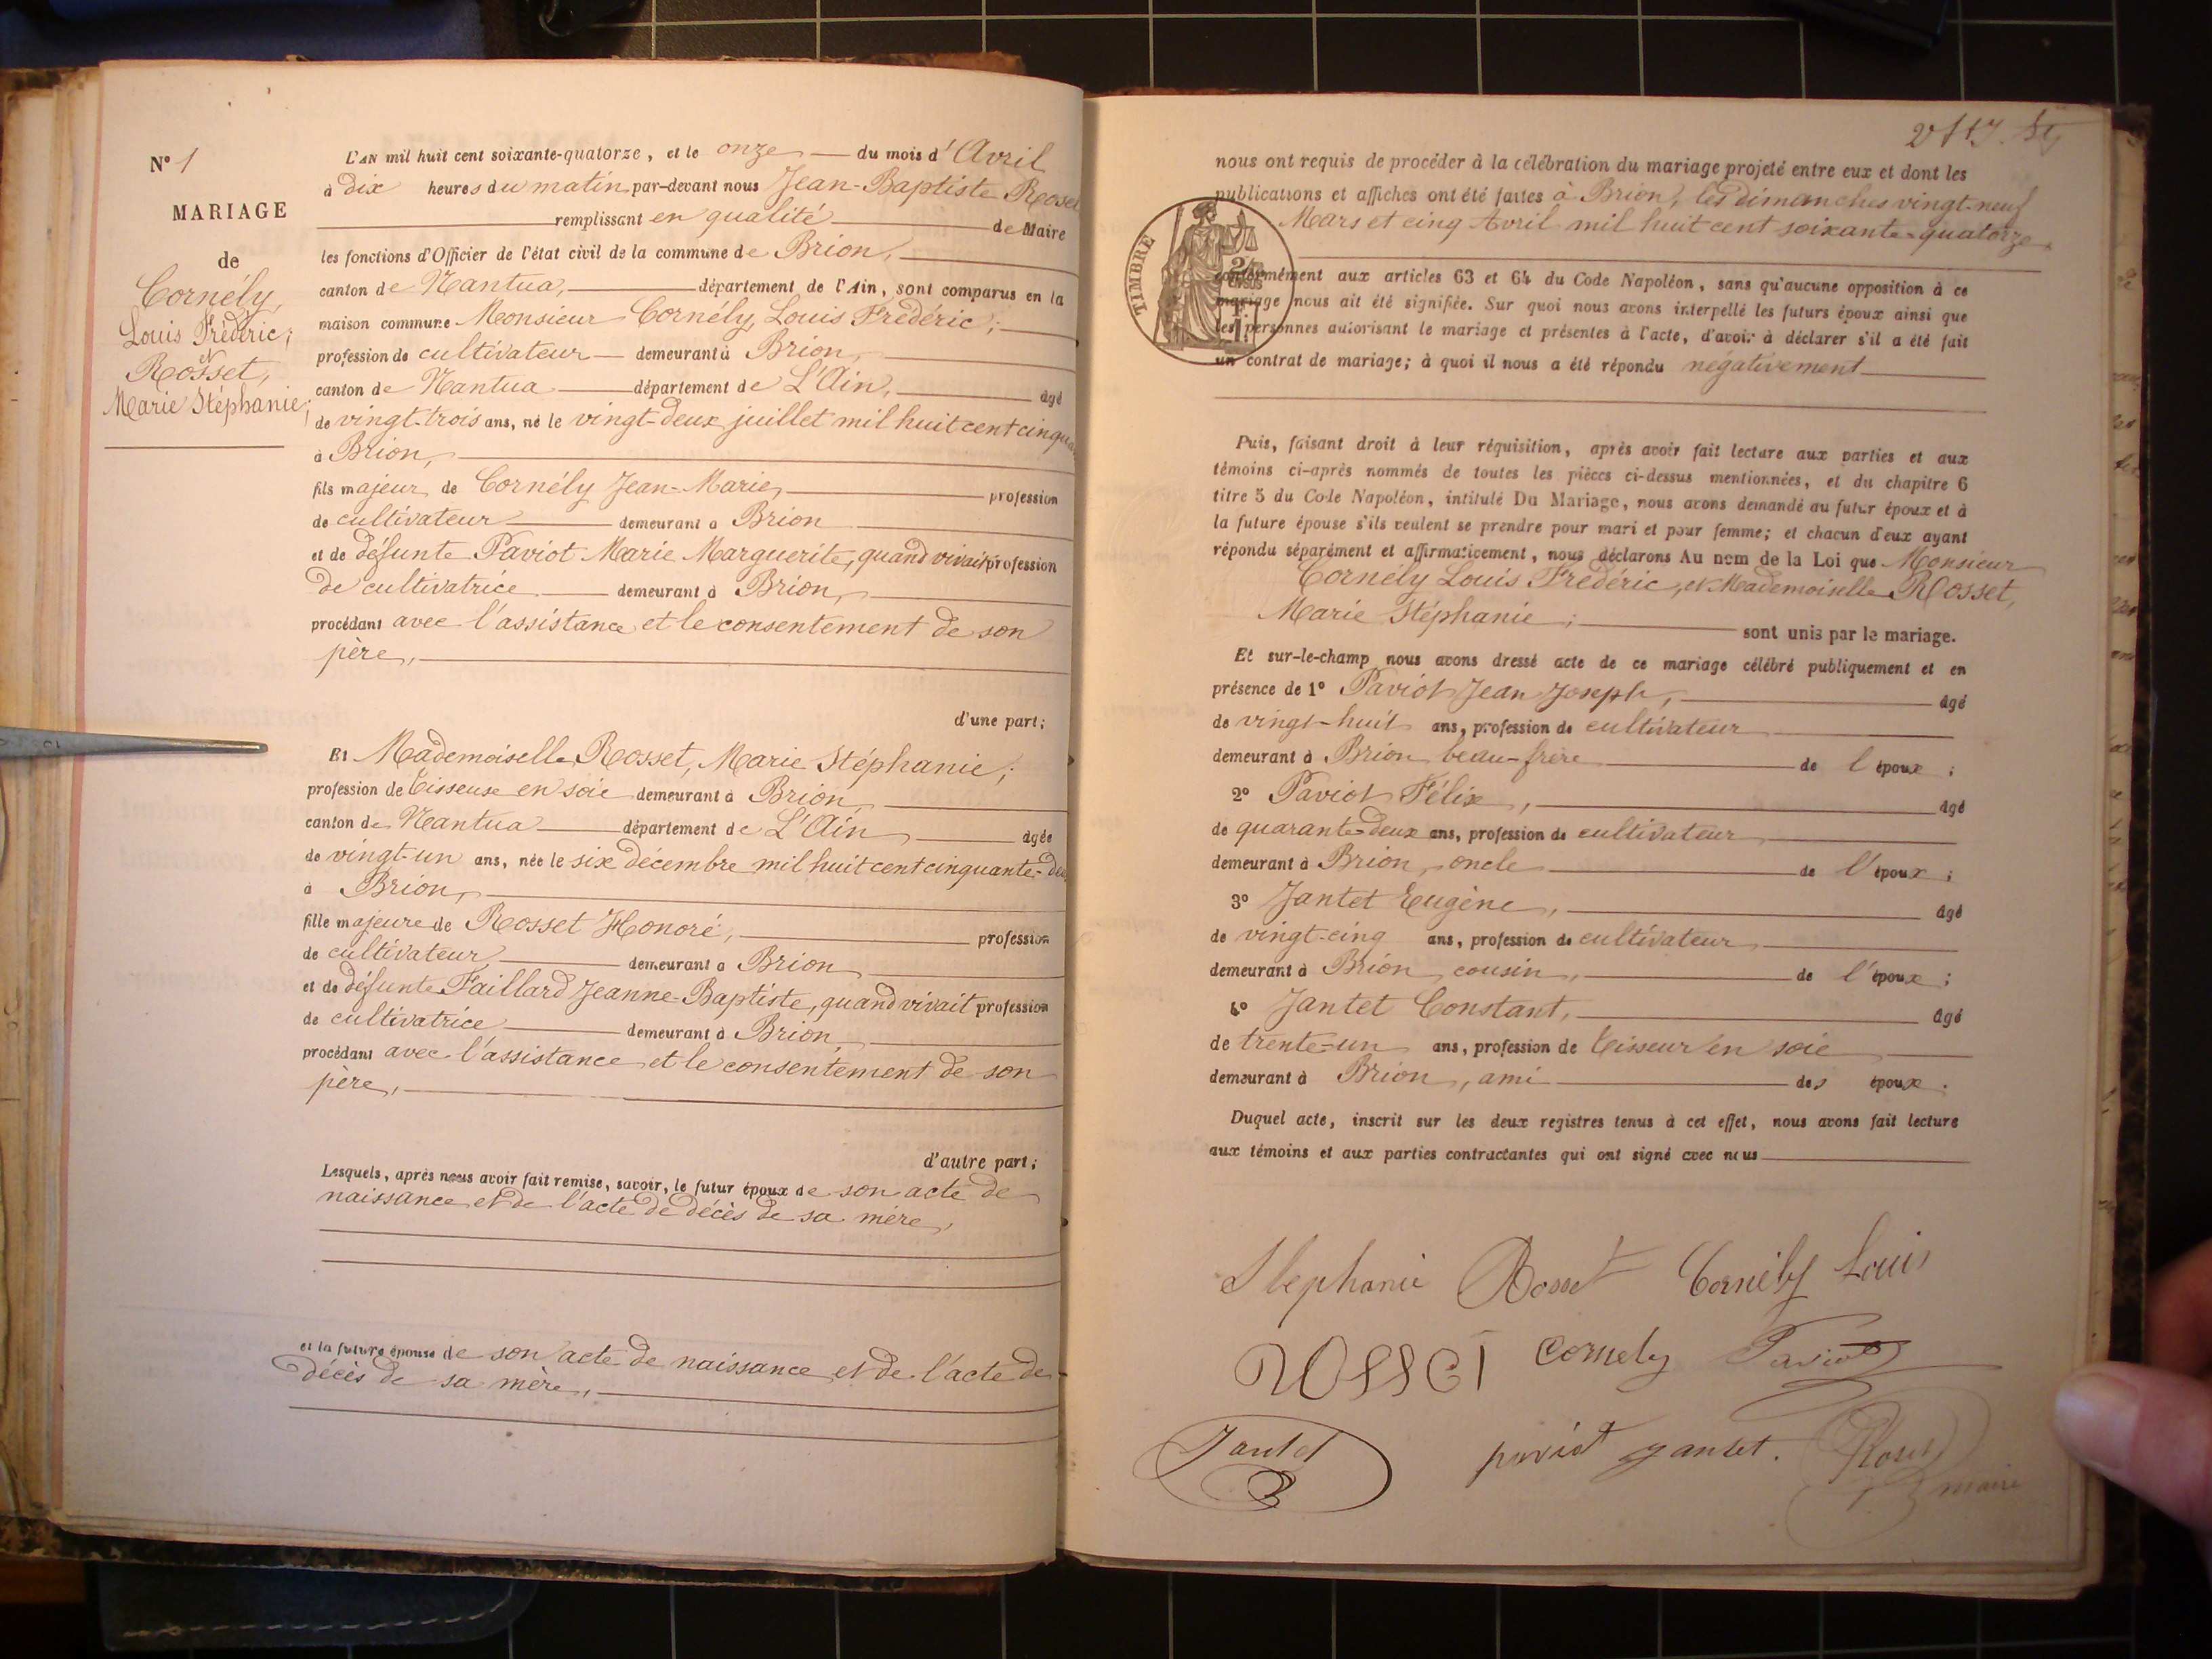 N° 1
MARIAGE
de
Cornély,
Louis Frédéric;
et
Rosset,
Marie Stéphanie;
L'AN mil huit cent soixante-quatorze, et le onze du mois d'Avril
à dix heures du matin par-devant nous Jean-Baptiste Rosset
remplissant en qualité de Maire
les fonctions d'Officier de l'état civil de la commune de Brion,
canton de Nantua, département de l'Ain, sont comparus en la
maison commune Monsieur Cornély, Louis Frédéric;
profession de cultivateur demeurant à Brion,
canton de Nantua département de L'Ain, âgé
de vingt-trois ans, né le vingt-deux juillet mil huit cent cinquante
à Brion,
fils majeur de Cornély Jean-Marie, profession
de cultivateur demeurant à Brion
et de défunte Paviot Marie Marguerite, quand vivait profession
de cultivatrice demeurant à Brion,
procédant avec l'assistance et le consentement de son
père,
d'une part;
Et Mademoiselle Rosset, Marie Stéphanie;
profession de tisseuse en soie demeurant à Brion,
canton de Nantua département de L'Ain, âgée
de vingt-un ans, née le six décembre mil huit cent cinquante-deux
à Brion,
fille majeure de Rosset Honoré, profession
de cultivateur demeurant à Brion
et de défunte Faillard Jeanne-Baptiste, quand vivait profession
de cultivatrice demeurant à Brion,
procédant avec l'assistance et le consentement de son
père,
d'autre part;
Lesquels, après nous avoir fait remise, savoir, le futur époux de son acte de
naissance et de l'acte de décès de sa mère,
et la future épouse de son acte de naissance et de l'acte de
décès de sa mère,
nous ont requis de procéder à la célébration du mariage projeté entre eux et dont les
publications et affiches ont été faites à Brion, les dimanches vingt-neuf
Mars et cinq Avril mil huit cent soixante-quatorze,
TIMBRE
conformément aux articles 63 et 64 du Code Napoléon, sans qu'aucune opposition à ce
mariage nous ait été signifiée. Sur quoi nous avons interpellé les futurs époux ainsi que
les personnes autorisant le mariage et présentes à l'acte, d'avoir à déclarer s'il a été fait
un contrat de mariage; à quoi il nous a été répondu négativement
Puis, faisant droit à leur réquisition, après avoir fait lecture aux parties et aux
témoins ci-après nommés de toutes les pièces ci-dessus mentionnées, et du chapitre 6
titre 5 du Code Napoléon, intitulé Du Mariage, nous avons demandé au futur époux et à
la future épouse s'ils veulent se prendre pour mari et pour femme; et chacun d'eux ayant
répondu séparément et affirmativement, nous déclarons Au nom de la Loi que Monsieur
Cornély Louis Frédéric, et Mademoiselle Rosset,
Marie Stéphanie; sont unis par le mariage.
Et sur-le-champ nous avons dressé acte de ce mariage célébré publiquement et en
présence de 1° Paviot Jean Joseph, âgé
de vingt-huit ans, profession de cultivateur
demeurant à Brion beau-frère de l'époux;
2° Paviot Félix, âgé
de quarante-deux ans, profession de cultivateur
demeurant à Brion, oncle de l'époux;
3° Jantet Eugène, âgé
de vingt-cinq ans, profession de cultivateur
demeurant à Brion, cousin, de l'époux;
4° Jantet Constant, âgé
de trente-un ans, profession de tisseur en soie
demeurant à Brion, ami des époux.
Duquel acte, inscrit sur les deux registres tenus à cet effet, nous avons fait lecture
aux témoins et aux parties contractantes qui ont signé avec nous
Stephanie Rosset Cornély Louis
ROSSET Cornely Paviot
Jantet paviot jantet. Rosset
maire